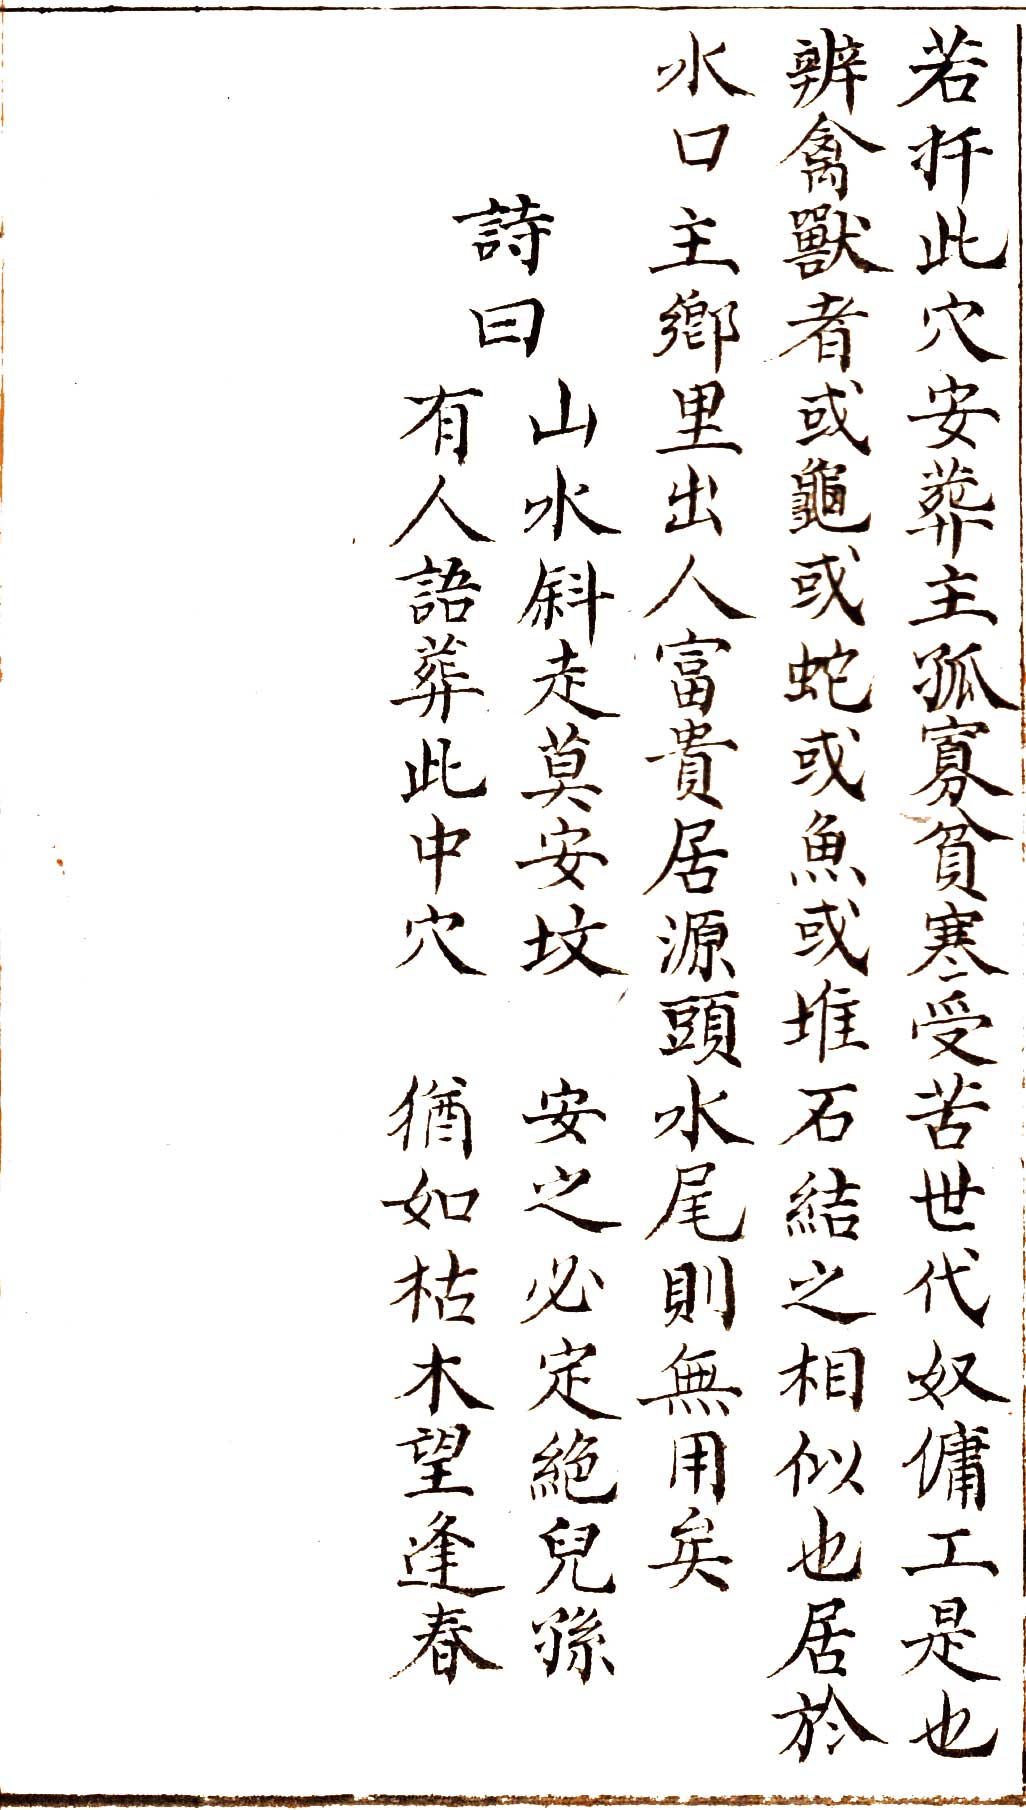 若扦此穴安葬主孤寡貧寒受苦世代奴傭工是也
辨禽獸者或龜或蛇或魚或堆石結之相似也居於
水口主鄉里出人富貴居源頭水尾則無用矣
詩曰
山水斜走莫安坟　安之必定絕兒孫
有人語葬此中穴　猶如枯木望逢春